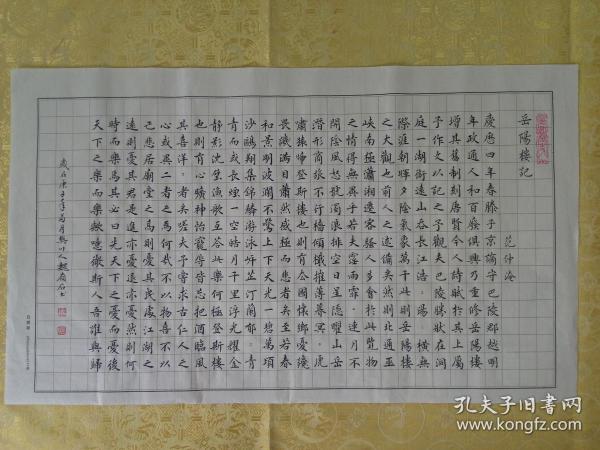 岳陽樓記
范仲淹
慶曆四年春滕子京謫守巴陵郡越明
年政通人和百廢俱興乃重修岳陽樓
增其舊制刻唐賢今人詩賦於其上屬
予作文以記之予觀夫巴陵勝狀在洞
庭一湖銜遠山吞長江浩、湯、橫無
際涯朝暉夕陰氣象萬千此則岳陽樓
之大觀也前人之述備矣然則北通巫
峽南極瀟湘遷客騷人多會於此覽物
之情得無異乎若夫霪雨霏、連月不
開陰風怒號濁浪排空日星隱曜山岳
潛形商旅不行檣傾楫摧薄暮冥、虎
嘯猿啼登斯樓也則有去國懷鄉憂讒
畏譏滿目蕭然感極而悲者矣至若春
和景明波瀾不驚上下天光一碧萬頃
沙鷗翔集錦鱗游泳岸芷汀蘭郁、青
青而或長煙一空皓月千里浮光耀金
靜影沈璧漁歌互答此樂何極登斯樓
也則有心曠神怡寵辱皆忘把酒臨風
其喜洋、者矣嗟夫予嘗求古仁人之
心或異二者之為何哉不以物喜不以
己悲居廟堂之高則憂其民處江湖之
遠則憂其君是進亦憂退亦憂然則何
時而樂焉其必曰先天下之憂而憂後
天下之樂而樂歟噫微斯人吾誰與歸
歲在庚子年菊月
孔夫子旧书网
www.kongfz.com